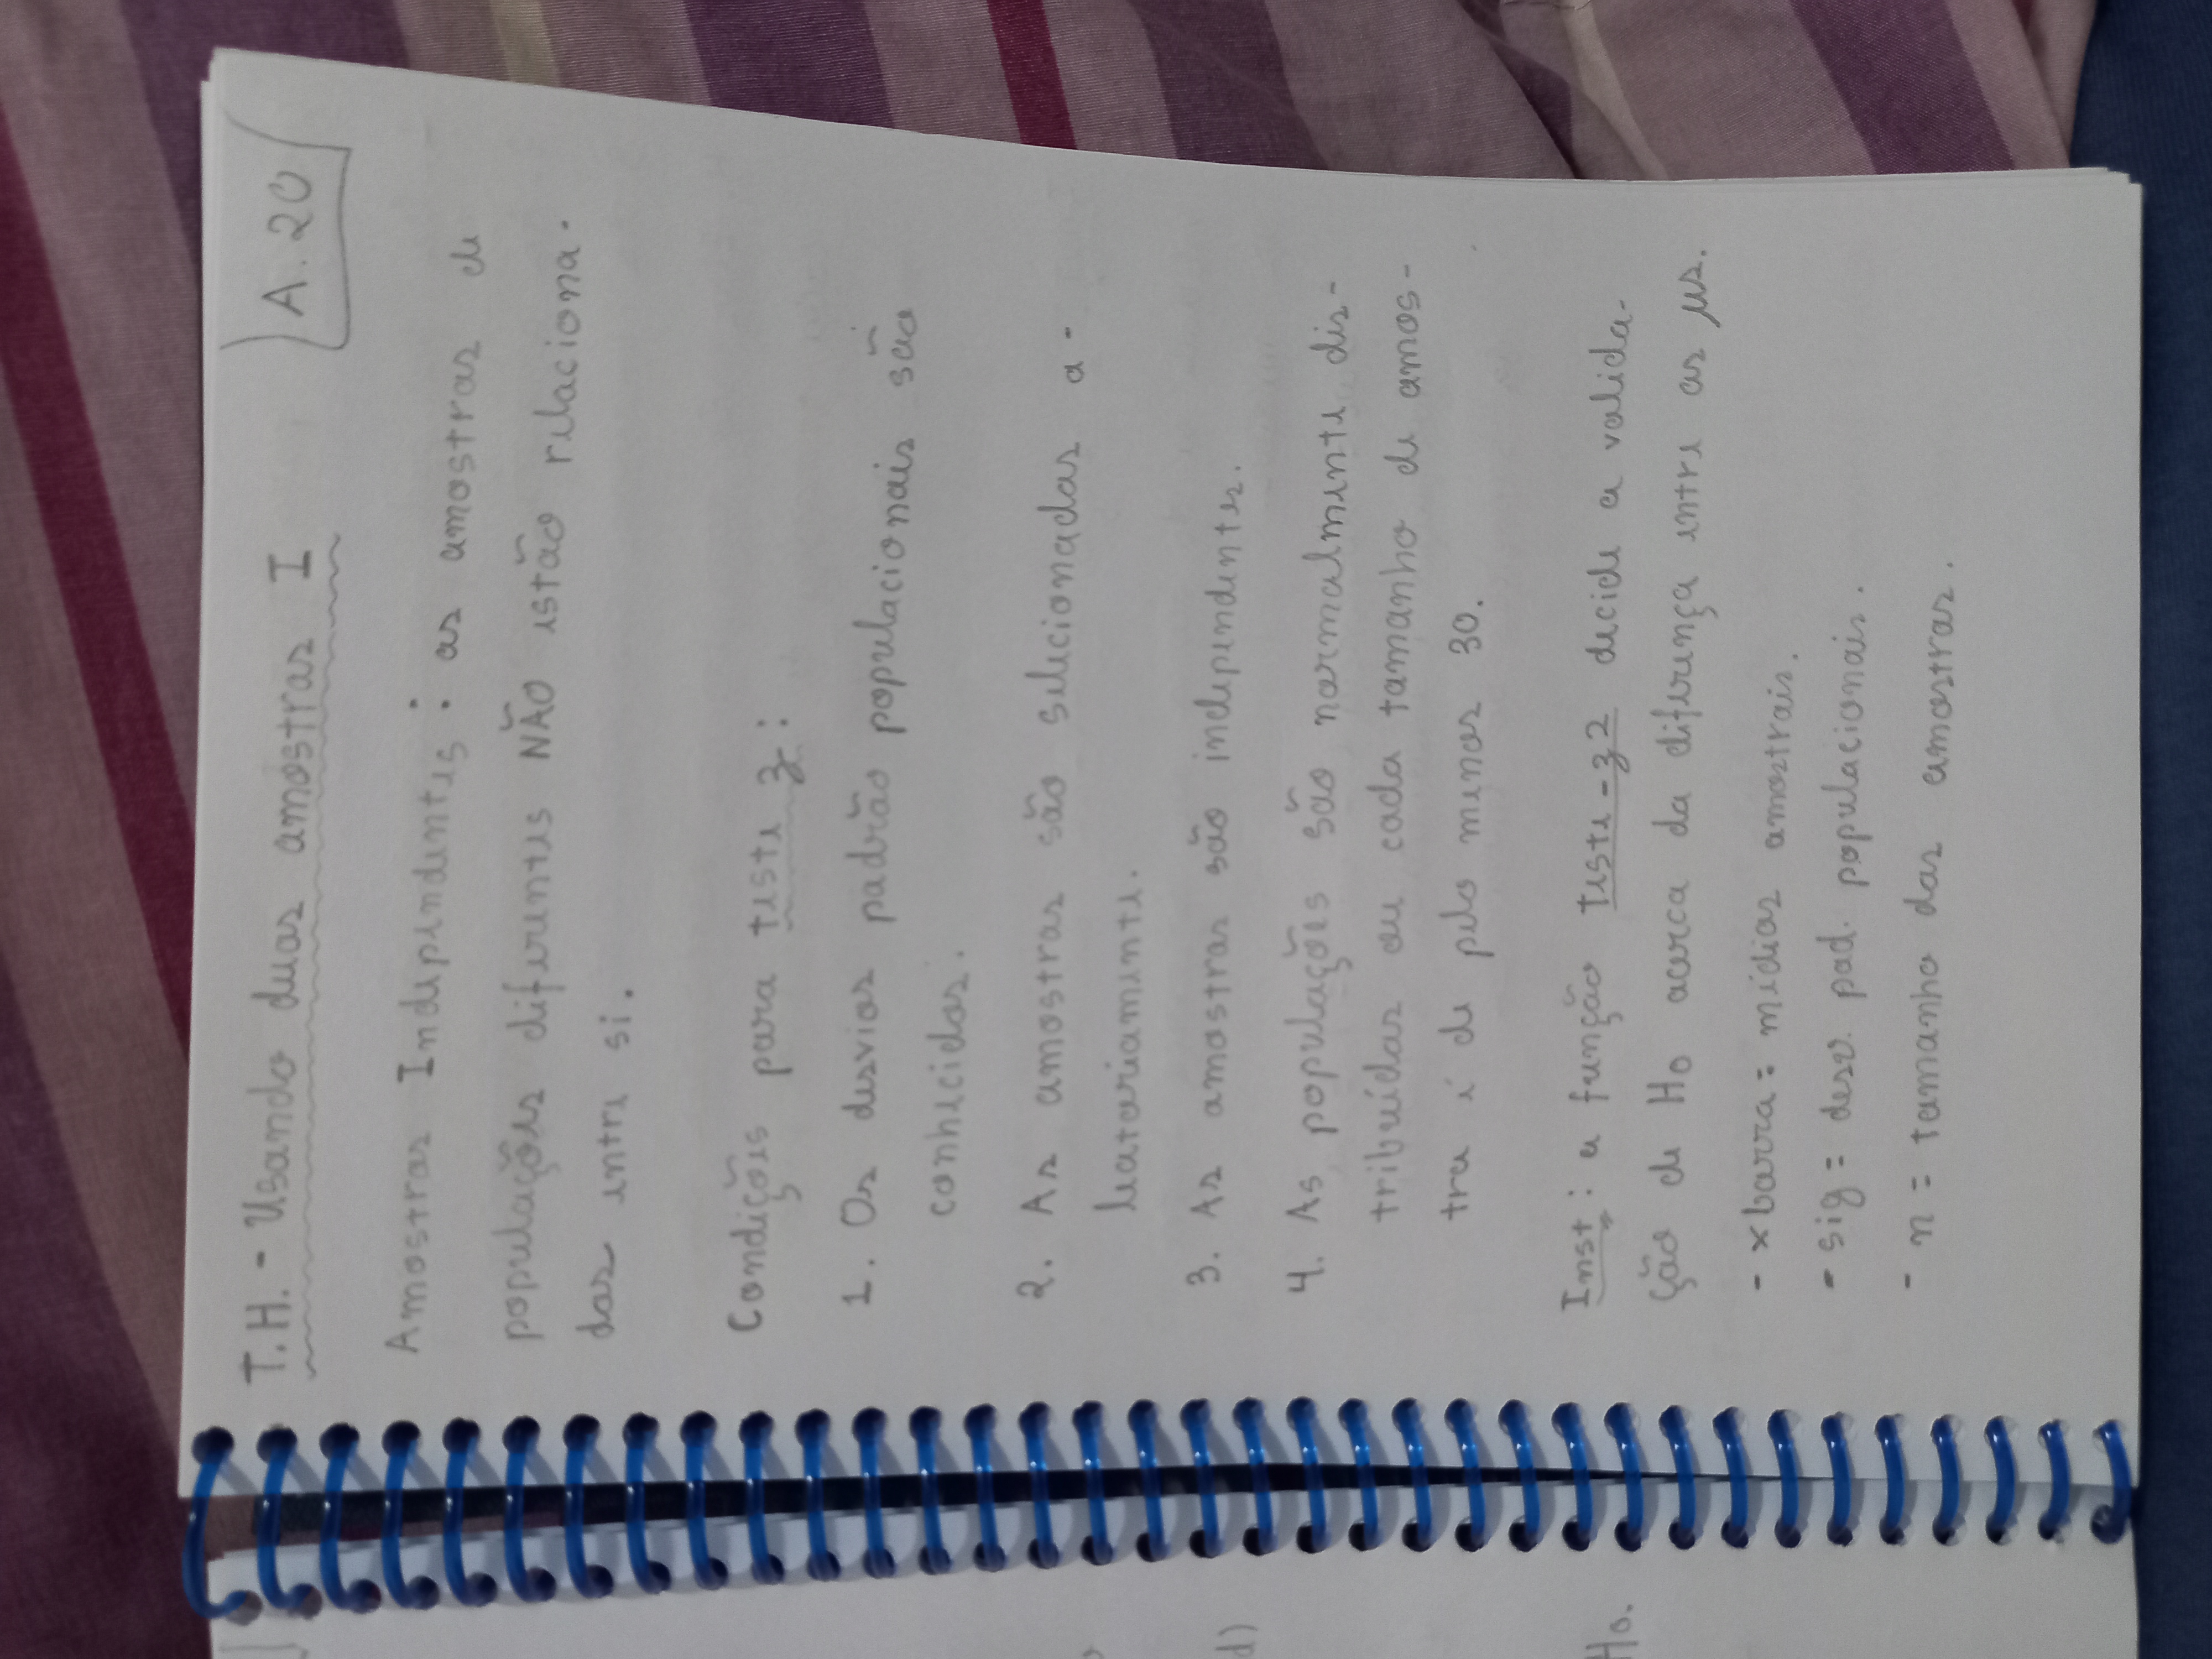 T.H. - Usando duas amostras I
A.20
Amostras Independentes: as amostras de
populações diferentes NÃO estão relaciona-
das entre si.
Condições para teste z:
1. Os desvios padrão populacionais são
conhecidos.
2. As amostras são selecionadas a-
leatoriamente.
3. As amostras são independentes.
4. As populações são normalmente dis-
tribuídas ou cada tamanho de amos-
tra é de pelo menos 30.
Inst: a função teste-z2 decide a valida-
ção de H0 acerca da diferença entre as μs.
- xbarra = médias amostrais.
- sig = desv. pad. populacionais.
- n = tamanho das amostras.
d)
H0.